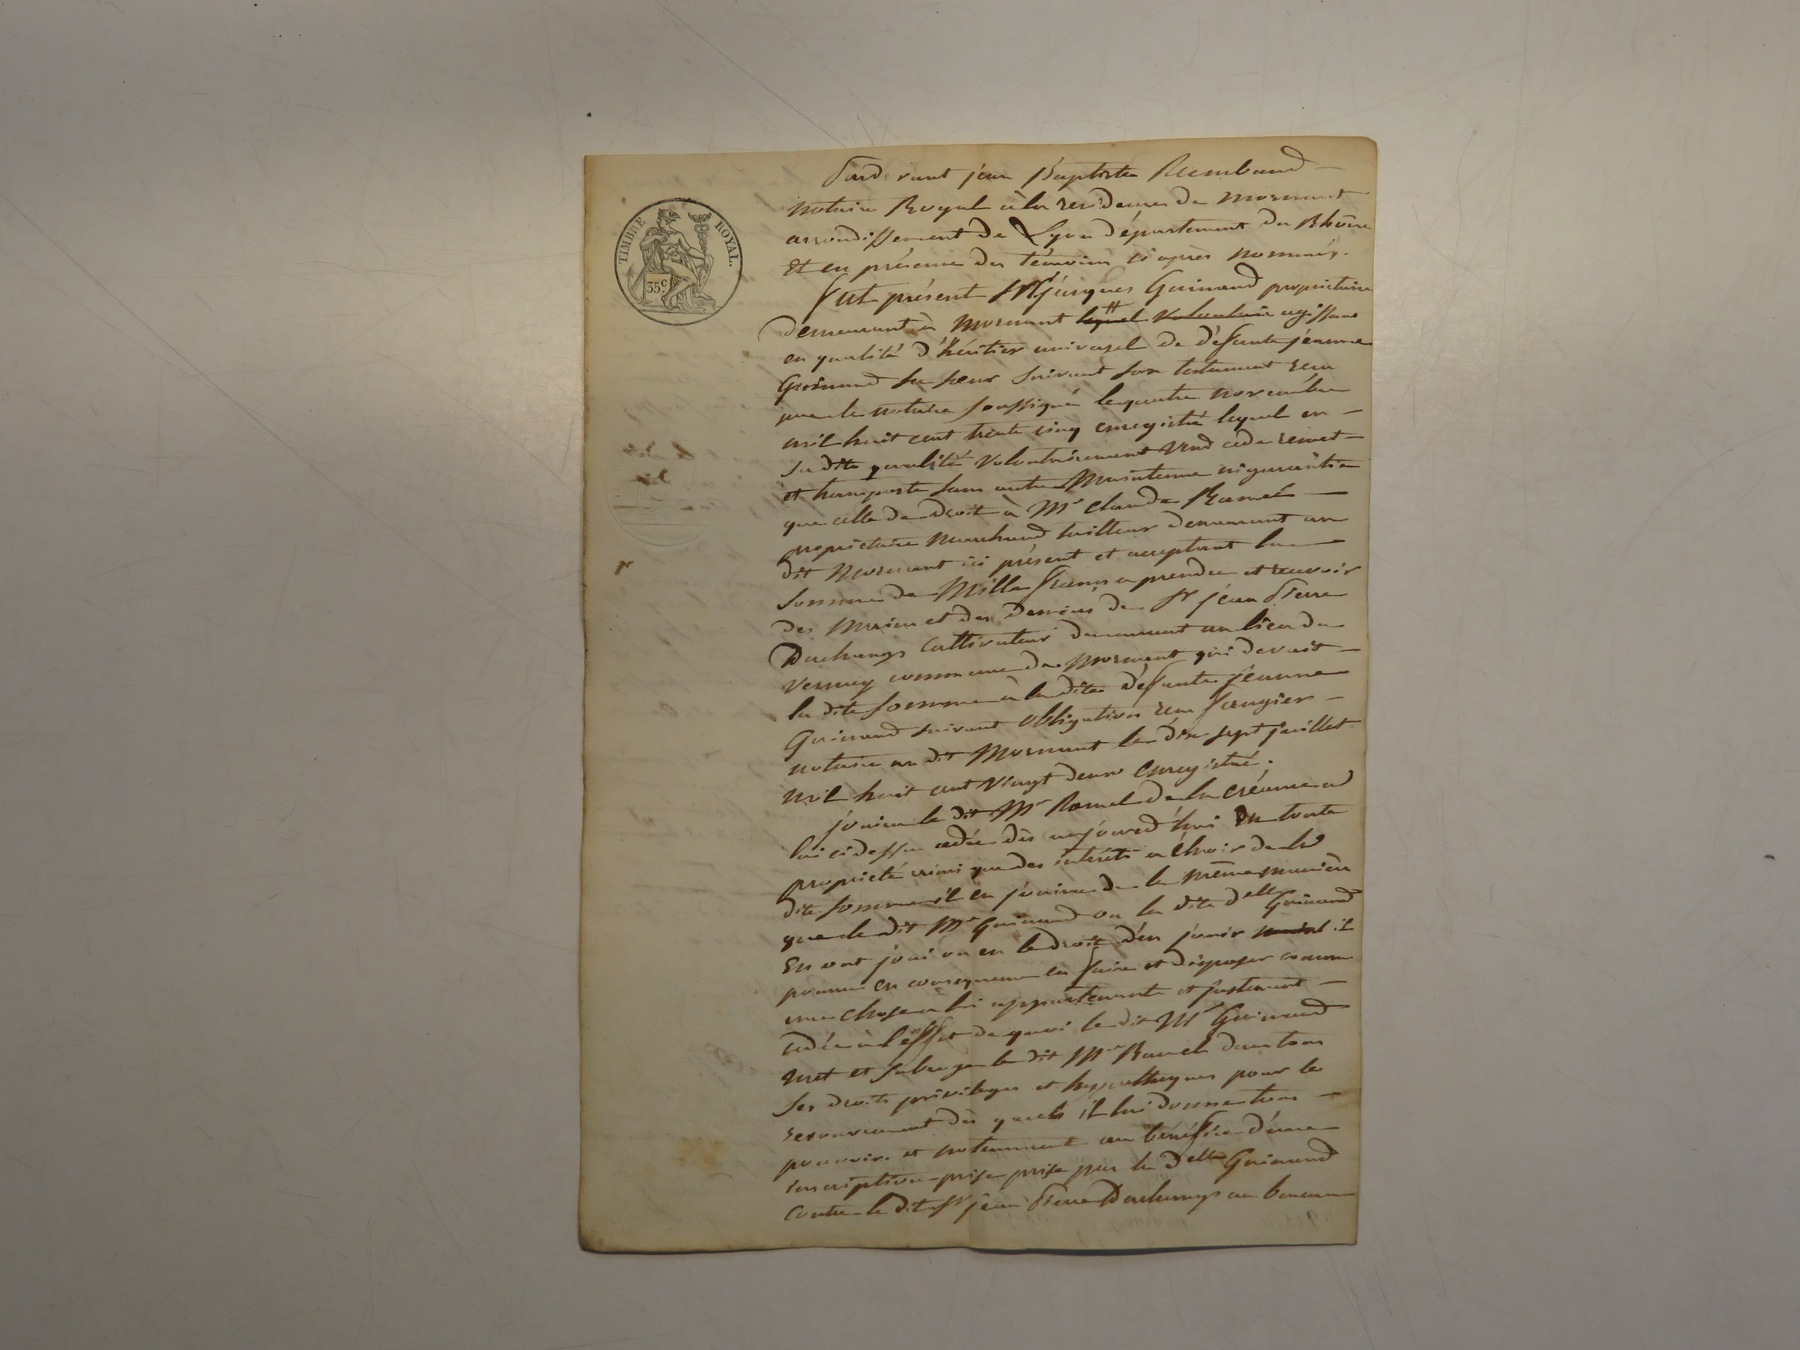 TIMBRE ROYAL.
35c
Pardevant jean Baptiste Rambaud
notaire Royal à la residence de mornant
arrondissement de Lyon département du Rhône
Et en présence des témoins ci après nommés.
fut présent Sr jacques Guinand propriétaire
demeurant à mornant lequel volontaire agissant
en qualité d'héritier universel de défunte jeanne
Guinand sa soeur suivant son testament reçu
par le notaire soussigné le quatre novembre
mil huit cent trente cinq enregistré lequel en
sa dite qualité volontairement vend cède remet
et transporte sans autre maintenue ni garantie
que celle de droit à Mr Claude
propriétaire marchand tailleur demeurant au
dit mornant ici présent et acceptant la
somme de Mille francs a prendre et recevoir
des mains et des deniers de Sr jean Pierre
Duchamp cultivateur demeurant au lieu de
commune de mornant qui devait
la dite somme à la dite défunte jeanne
Guinand suivant obligation reçu
notaire au dit Mornant le dix sept juillet
mil huit cent vingt deux enregistré.
jouira le dit Mr de la créance
lui ci dessus cédée dès aujourd'hui en toute
propriété ainsi que des intérêts a échoir de la
dite somme il en jouira de la même manière
que le dit Mr Guinand ou la dite delle Guinand
En ont joui ou eu le droit d'en jouir il
pourra en conséquence en faire et disposer comme
une chose a lui appartenante et justement
cédée à l'effet de quoi le dit Mr Guinand
met et subroge le dit Mr dans tous
ses droits privileges et hypotheques pour le
recouvrement des quels il lui donne tous
pouvoirs et notamment au bénéfice d'une
inscription prise prise par la delle Guinand
contre le dit Sr jean Pierre Duchamp au bureau